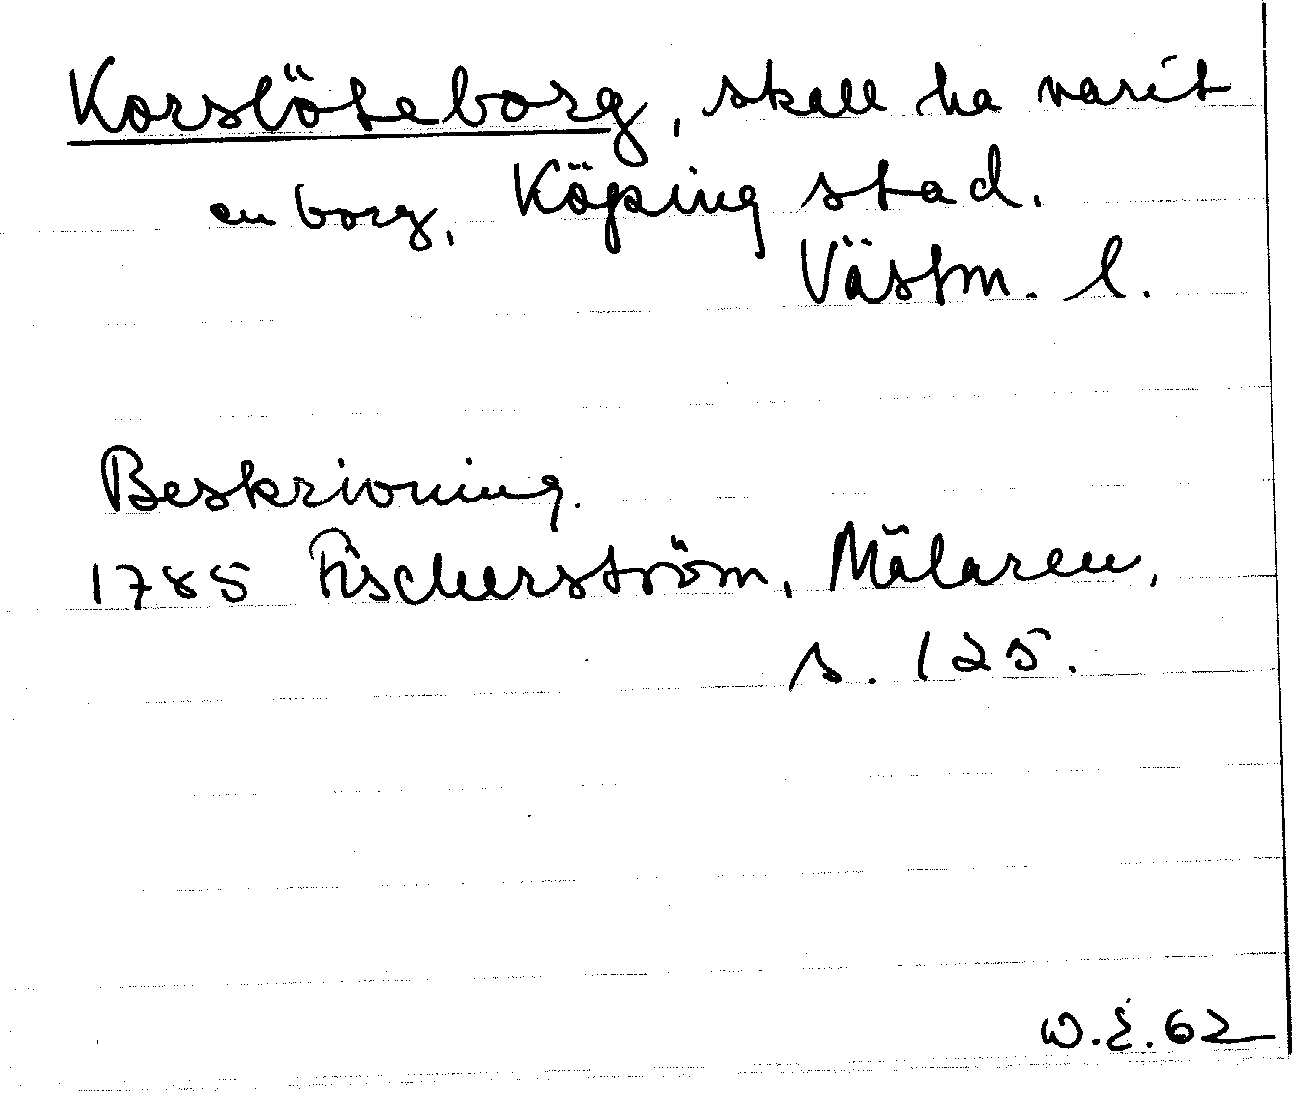 Korslöteborg, skall ha varit
en borg, Köping stad.
Västm. l.
Beskrivning.
1785 Fischerström, Mälaren,
s. 125.
W.E.62